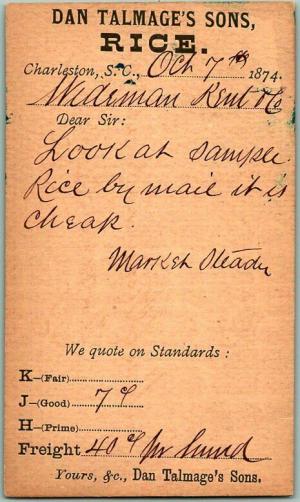 DAN TALMAGE'S SONS,
RICE.
Charleston, S. C., Oct 7th 1874.
Wideman Kent & Co
Dear Sir:
Look at Sample
Rice by mail it is
Cheap.
Market Steady
We quote on Standards:
K—(Fair)
J—(Good) 7¢
H—(Prime)
Freight 40¢ pr hund
Yours, &c., Dan Talmage's Sons.